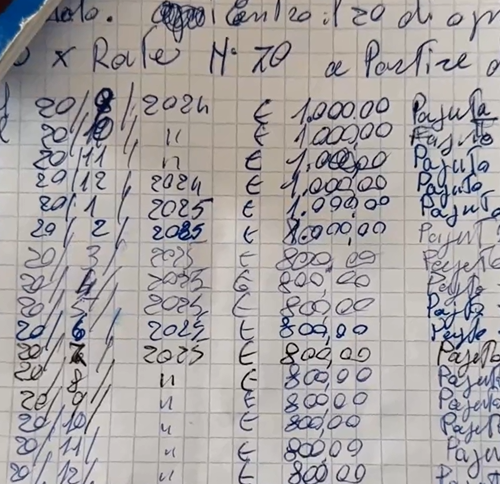 Entro il 20 di o
x Rate N° 20 a Partire
20/9/2024 € 1.000,00 Pagata
20/10/ " € 1.000,00 Pagata
20/11/ " € 1.000,00 Pagata
20/12/2024 € 1.000,00 Pagata
20/1/2025 € 1.000,00 Pagata
20/2/2025 € 800,00 Pagat
20/3/2025 € 800,00 Pagata
20/4/2025 € 800,00 Pagata
20/5/2025 € 800,00 Pagata
20/6/2025 € 800,00 Pagata
20/7/2025 € 800,00 Pagata
20/8/ " € 800,00 Pagata
20/9/ " € 800,00 Pagata
20/10/ " € 800,00 Pagata
20/11/ " € 800,00 Pagata
20/12/ " € 800,00 Pagata